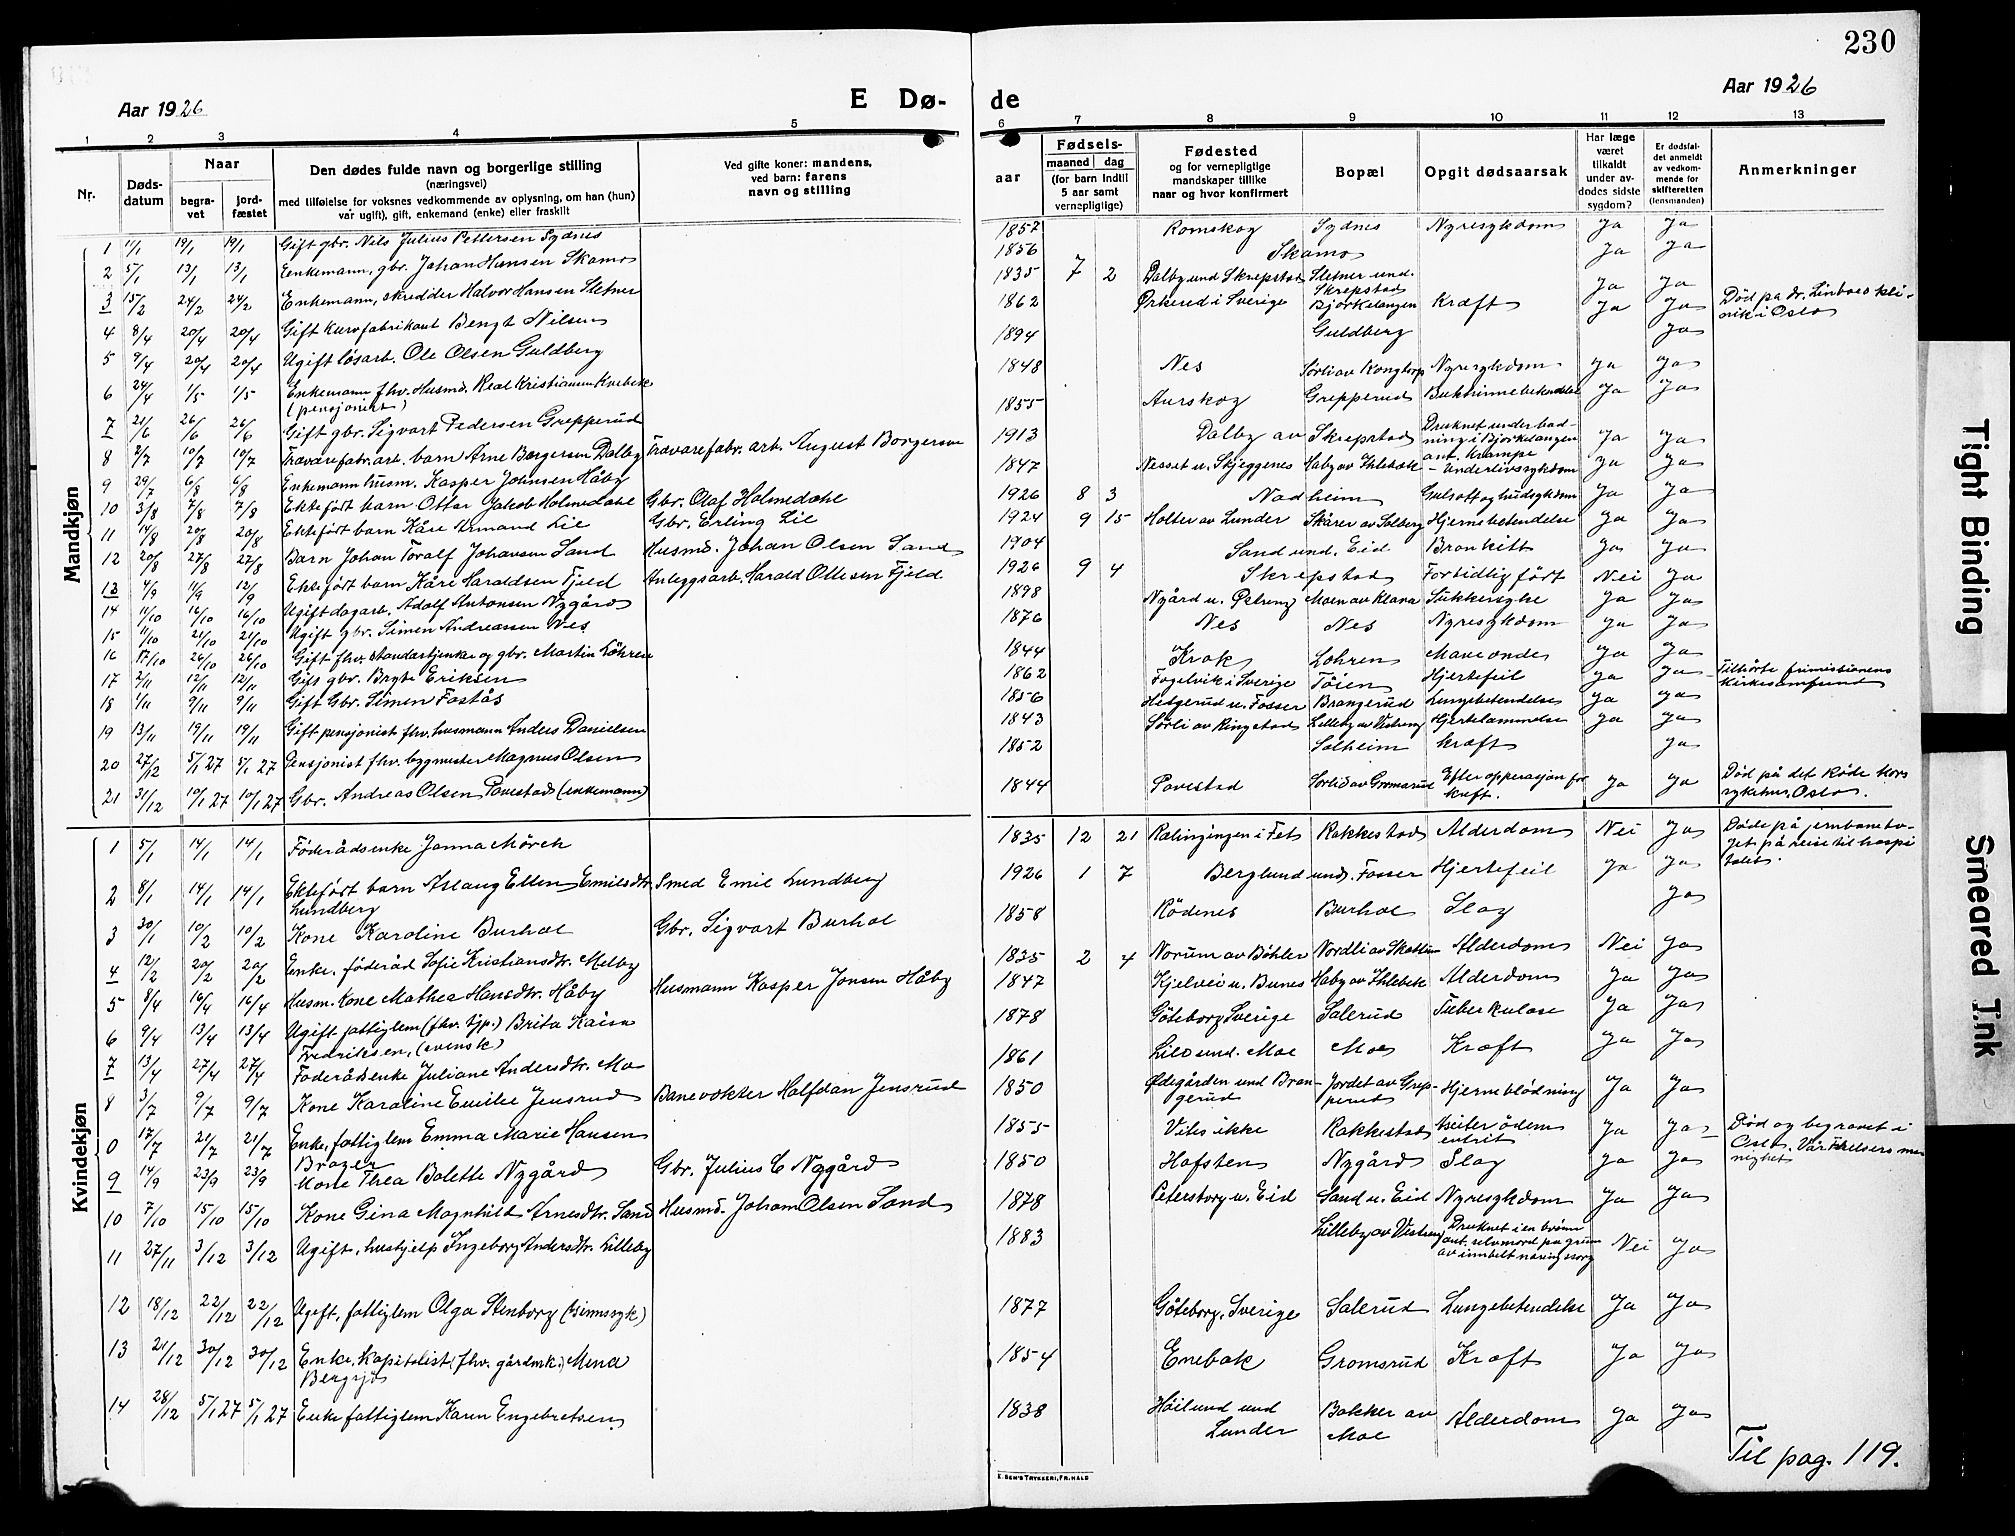 230
Aar 1926 E Dø- de Aar 1926
1 2 3 4 5 6 7 8 9 10 11 12 13
Nr. Døds-datum Naar begra-vet jord-fæstet
Den dødes fulde navn og borgerlige stilling
(næringsvei)
med tilføielse for voksnes vedkommende av oplysning, om han (hun)
var ugift), gift, enkemand (enke) eller fraskilt
Ved gifte koner: mandens,
ved barn: farens
navn og stilling
aar Fødsels- maaned dag
(for barn indtil
5 aar samt
vernepligtige)
Fødested
og for vernepligtige
mandskaper tillike
naar og hvor konfirmert
Bopæl
Opgit dødsaarsak
Har læge
været
tilkaldt
under av-
dødes sidste
sygdom?
Er dødsfal-
det anmeldt
av vedkom-
mende for
skifteretten
(lensmanden)
Anmerkninger
Mandkjøn
1 11/1 19/1 19/1 Gift gbr. Nils Julius Pettersen Sydnes 1857 Romskog Sydnes Nyresykdom Ja Ja
2 5/1 13/1 13/1 Enkemann, gbr. Johan Hansen Skamo 1856 Skamo Ja Ja
3 15/2 24/2 24/2 Enkemann, skredder Halvor Hansen Sletner 1835 7 2 Dalby und Skrepstad Sletner und. Skrepstad Ja Ja
4 8/4 20/4 20/4 Gift kurvfabrikant Bengt Nilsen 1862 Ørkerud i Sverige Bjørkelangen Kræft Ja Ja Død på dr. Linboes kli-
nik i Oslo
5 9/4 20/4 20/4 Ugift løsarb. Ole Olsen Guldberg 1894 Guldberg Ja
6 24/4 1/5 1/5 Enkemann fhv. Husmd. Karl Kristiansen Kvebek
(pensjonist) 1848 Nes Sørli av Kongtorp Nyresykdom Ja Ja
7 21/6 26/6 26/6 Gift gbr. Sigvart Pedersen Grepperud 1855 Aurskog Grepperud Bukhinnebetendelse Ja Ja
8 2/7 10/7 10/7 Trævarefabr. arb. barn Arne Borgersen Dalby Trævarefabr. arb. August Borgersen 1913 Dalby av Skrepstad Druknet under bad-
ning i Bjørkelangen
ant. krampe Ja Ja
9 29/7 6/8 6/8 Enkemann husm. Kasper Johnsen Håby 1847 Nesset u. Skjeggenes Haby av Ihlebæk Underlivssykdom Ja Ja
10 3/8 7/8 7/8 Ektefødt barn Ottar Jakob Holmedahl Gbr. Olaf Holmedahl 1926 8 3 Nadheim Gulsott og hudsykdom Ja Ja
11 14/8 20/8 20/8 Ektefødt barn Kåre Armand Lie Gbr. Erling Lie 1924 9 15 Holter av Lunder Skårer av Solberg Hjernebetendelse Ja Ja
12 20/8 27/8 27/8 Barn Johan Toralf Johansen Sand Husmd. Johan Olsen Sand 1904 Sand und. Eid Bronkitt Ja Ja
13 4/9 11/9 12/9 Ektefødt barn Kåre Haraldsen Fjeld Anleggsarb. Harald Ottesen Fjeld 1926 9 4 Skrepstad Fortidlig født Nei Ja
14 11/10 16/10 16/10 Ugift dagarb. Adolf Antonsen Nygård 1898 Nygård u. Moen av Sukkersyke Ja Ja
15 11/10 21/10 21/10 Ugift gbr. Simen Andreassen Nes 1876 Nes Nes Nyresykdom Ja Ja
16 17/10 26/10 26/10 Gift fhv. standartjunker og gbr. Martin Løhren 1844 Krok Lohren Maveonde Ja Ja
17 2/11 12/11 12/11 Gift gbr. Brynte Eriksen 1862 Fogelvik i Sverige Tøien Hjertefeil Ja Ja Tilhørte frimissionens
kirkesamfund
18 1/11 9/11 9/11 Gift Gbr. Simen Fostås 1856 Hidgerud u. Fosser Brangerud Lungebetendelse Ja Ja
19 13/11 19/11 19/11 Gift pensjonist fhv. husmann Anders Danielsen 1843 Sørli av Ringstad Lilleby av Vestreng Hjertelammelse Ja Ja
20 27/12 5/1 27 5/1 27 Pensjonist fhv. bygmester Magnus Olsen 1852 Solheim kræft Ja
21 31/12 10/1 27 10/1 27 Gbr. Andreas Olsen Povestad (enkemann) 1844 Povestad Sorlid av Gromsrud Efter opperasjon for
kræft. Ja Ja Død på det Røde kors
sykehus, Oslo.
Kvindekjøn
1 5/1 14/1 14/1 Føderådsenke Janna Mørch 1835 12 21 Ralingingen i Fet Rakkestad Alderdom Nei Ja Døde på jernbaneto-
get på reise til hospi
talet.
2 8/1 14/1 14/1 Ektefødt barn Aslaug Ellen Emilsdtr.
Lundberg Smed Emil Lundberg 1926 1 7 Berglund und. Fosser Hjertefeil Ja Ja
3 30/1 10/2 10/2 Kone Karoline Burhol Gbr. Sigvart Burhol 1858 Rødenes Burhol Slag Ja
4 12/2 20/2 20/2 Enke, føderåd Sofie Kristiansdtr. Melby 1835 2 4 Norum av Bøhler Nordli av Alderdom Nei Ja
5 8/4 16/4 16/4 Husm. Kone Mathea Hansdtr. Håby Husmann Kasper Jonsen Håby 1847 Kjelvei u. Bunes Haby av Ihlebek Alderdom Ja Ja
6 9/4 13/4 13/4 Ugift fattiglem (fhv. tjp.) Brita Kaisa
Fredriksen, (svensk) 1878 Göteborg Sverige Salerud Tuberkulose Ja Ja
7 13/4 27/4 27/4 Føderådsenke Juliane Andersdtr. Mo 1861 Lilo und. Moe Moe Kræft Ja Ja
8 3/7 9/7 9/7 Kone Karoline Emilie Jensrud Banevokter Halfdan Jensrud 1850 Ødegården und Bran-
gerud Jordet av Grep-
perud Hjerneblødning Ja Ja
0 17/7 21/7 21/7 Enke, fattiglem Emma Marie Hansen
Brager 1855 Vites ikke Rakkestad Ja Ja Død og begravet i
Oslo. Vår Frelsers me
nighet.
9 14/9 23/9 23/9 Kone Thea Bolette Nygård Gbr. Julius C Nygård 1850 Hofsten Nygård Slag Ja Ja
10 7/10 15/10 15/10 Kone Gina Magnhild Arnesdtr. Sand Husmd. Johan Olsen Sand 1878 Petersborg u. Eid Sand u. Eid Nyresykdom Ja Ja
11 27/11 3/12 3/12 Ugift, hushjelp Ingeborg Andersdtr. Lilleby 1883 Lilleby av Vestreng Druknet i en brønn
ant. selvmord på grunn
av innbilt næringssorg Nei Ja
12 18/12 22/12 22/12 Ugift, fattiglem Olga Stenborg (sinnssyk) 1877 Göteborg, Sverige Salerud Lungebetendelse Ja Ja
13 21/12 30/12 30/12 Enke, Kapitalist (fhv. gårdmk.) Mina
Bergsjø 1854 Enebak Gromsrud Kræft Ja Ja
14 28/12 5/1 27 5/1 27 Enke fattiglem Karen Engebretsen 1838 Høilund und
Lunder Bakker av
Moe Alderdom Ja Ja
Til pag. 119.
E. SEM'S TRYKKERI, FR.HALD
Tight Binding
Smeared Ink